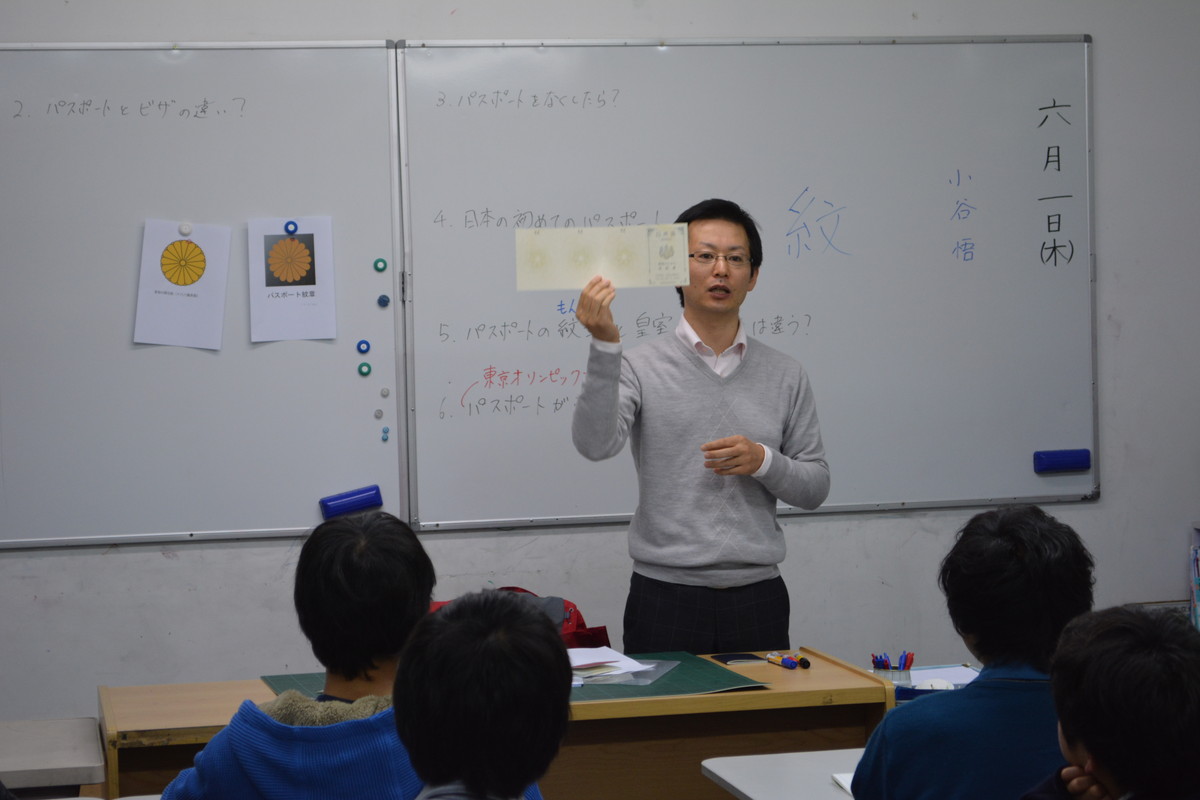 2. パスポートとビザの違い?
パスポート紋章
3. パスポートをなくしたら?
4. 日本の初めてのパスポート
紋
もん
5. パスポートの紋
と皇室
は違う?
東京オリンピック
6. パスポートが
小谷 悟
六月一日(木)